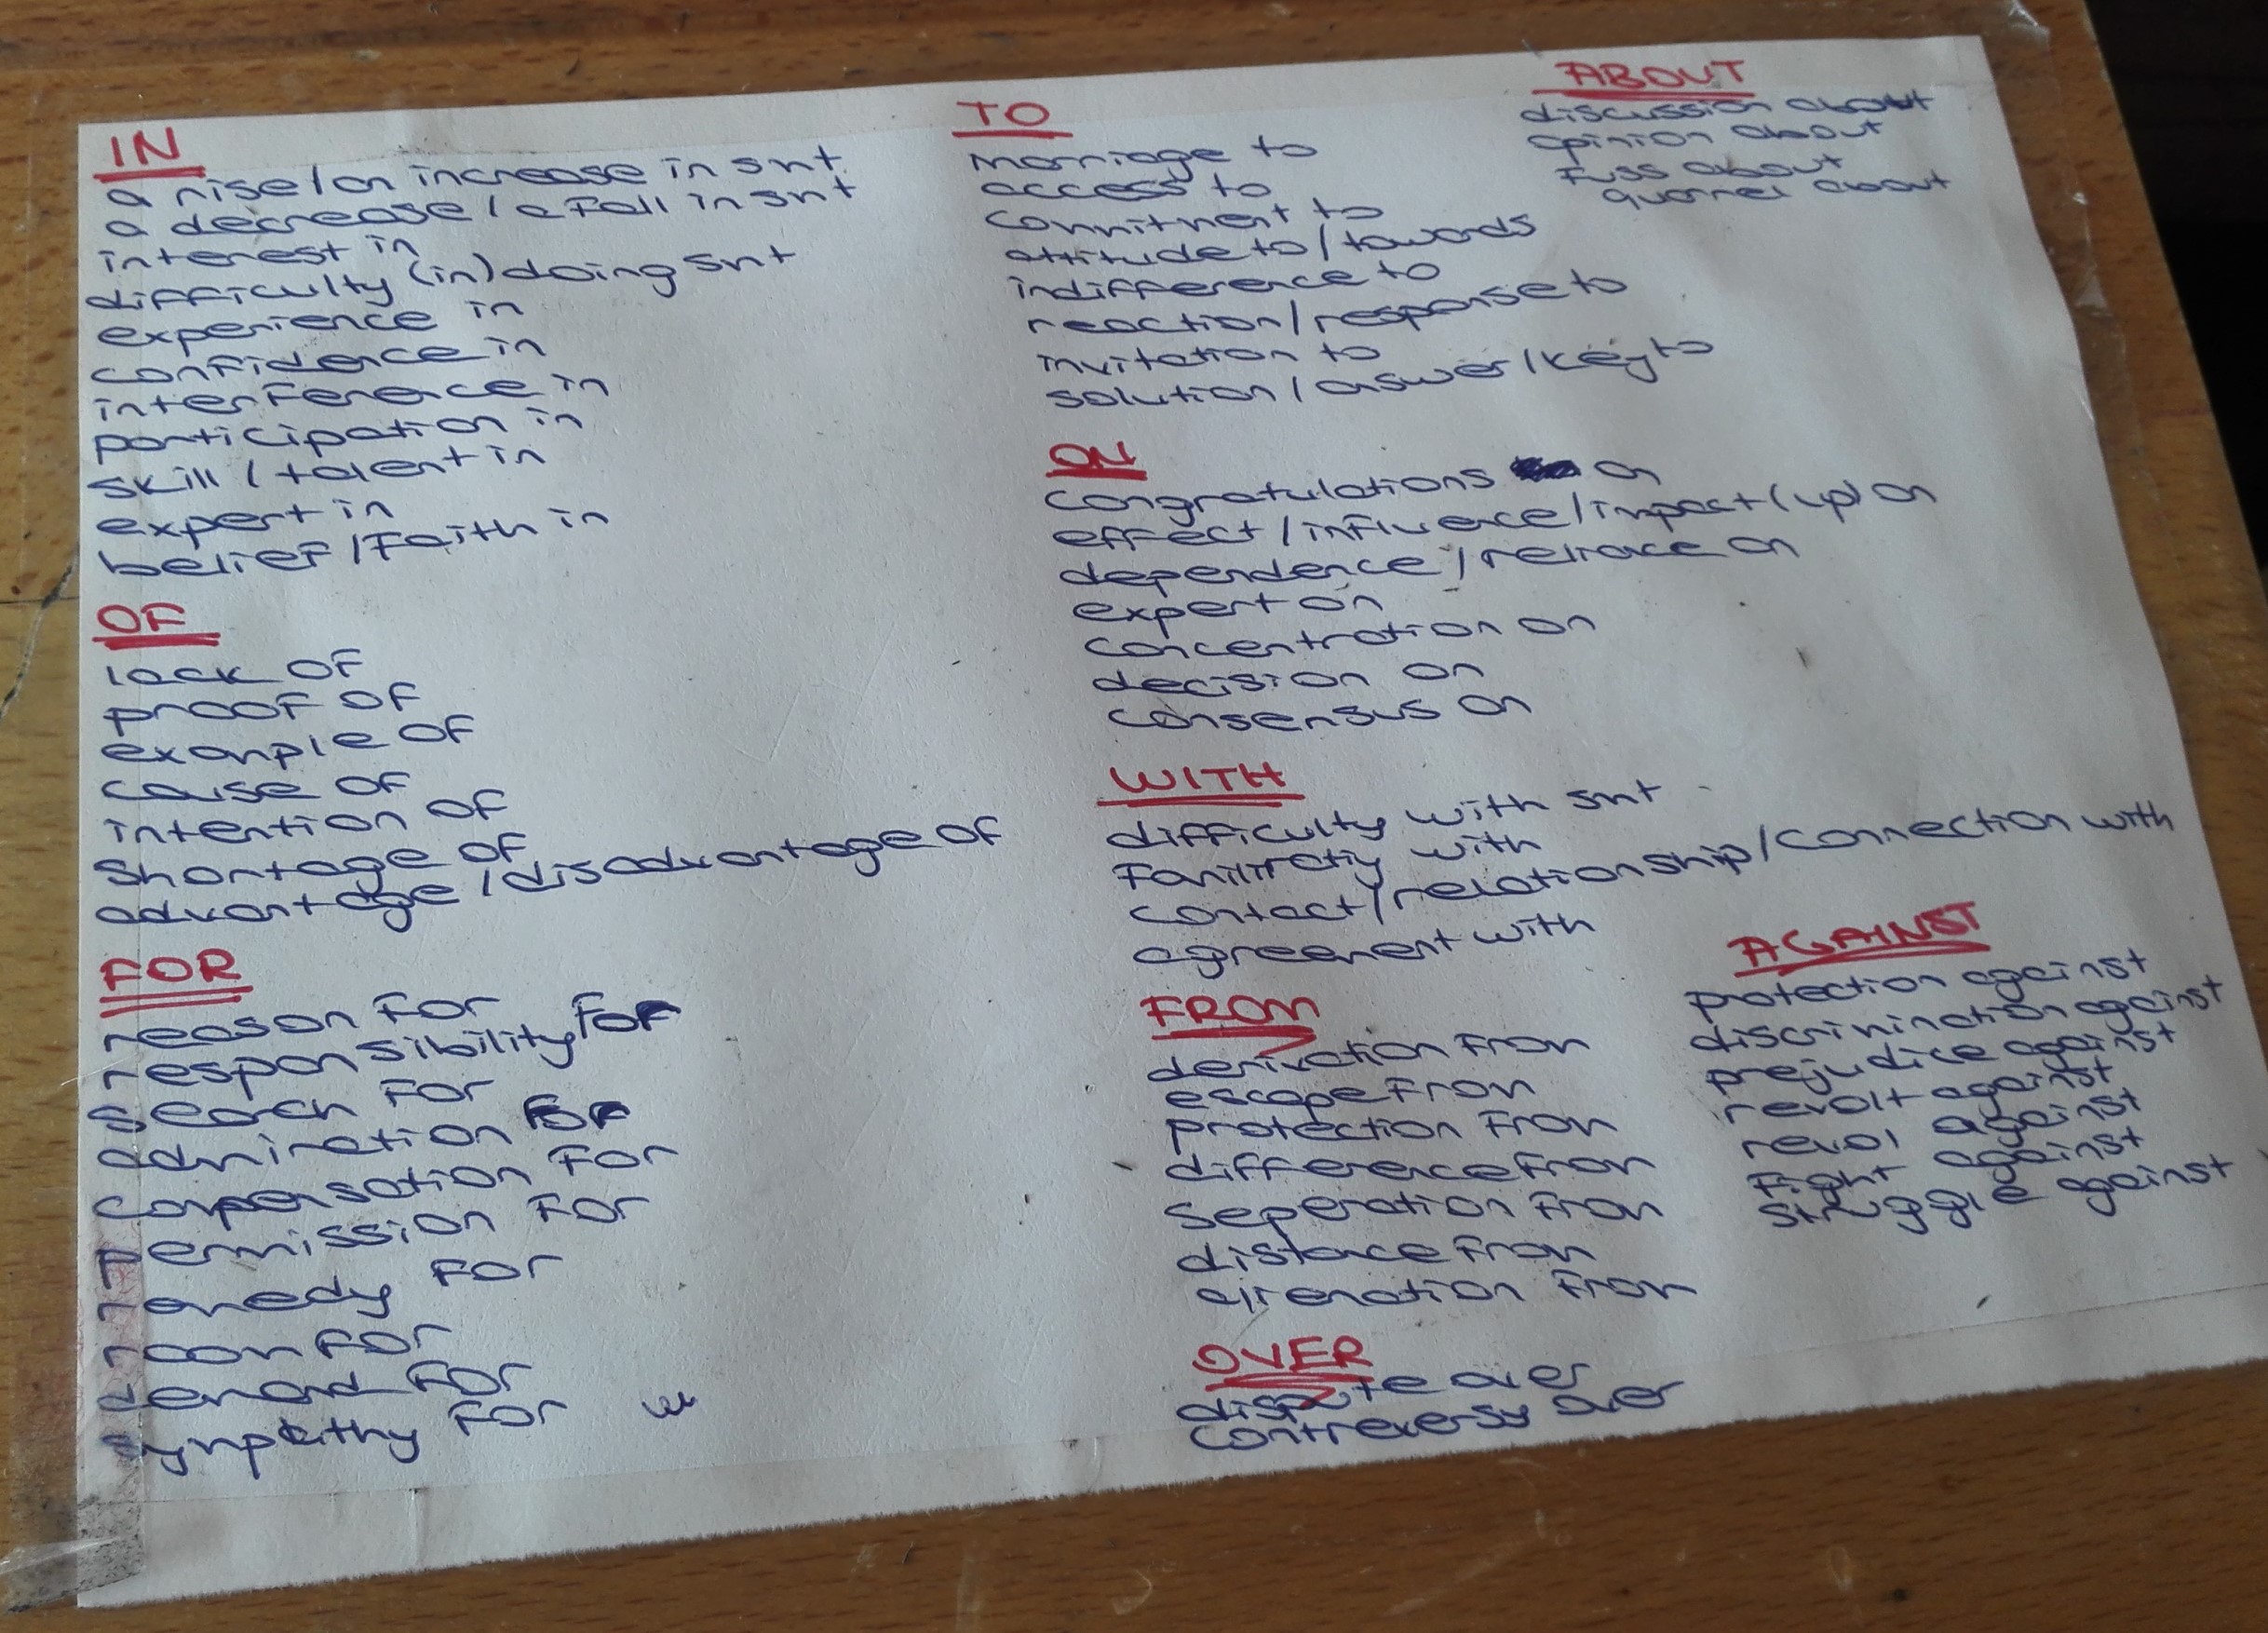 IN
a rise/an increase in smt
a decrease/a fall in smt
interest in
difficulty (in) doing smt
experience in
confidence in
interference in
participation in
skill/talent in
expert in
belief/faith in
OF
lack of
proof of
example of
cause of
intention of
shortage of
advantage/disadvantage of
FOR
reason for
responsibility for
search for
admiration for
compensation for
permission for
remedy for
room for
demand for
sympathy for
TO
marriage to
access to
commitment to
attitude to/towards
indifference to
reaction/response to
invitation to
solution/answer/key to
ON
congratulations on
effect/influence/impact (up) on
dependence/reliance on
expert on
concentration on
decision on
consensus on
WITH
difficulty with smt
with
contact/relationship/connection with
agreement with
FROM
derivation from
escape from
protection from
difference from
seperation from
distance from
alienation from
OVER
dispute over
contreversy over
ABOUT
discussion about
opinion about
fuss about
quarrel about
AGAINST
protection against
discrimination against
prejudice against
revolt against
revol against
fight against
struggle against